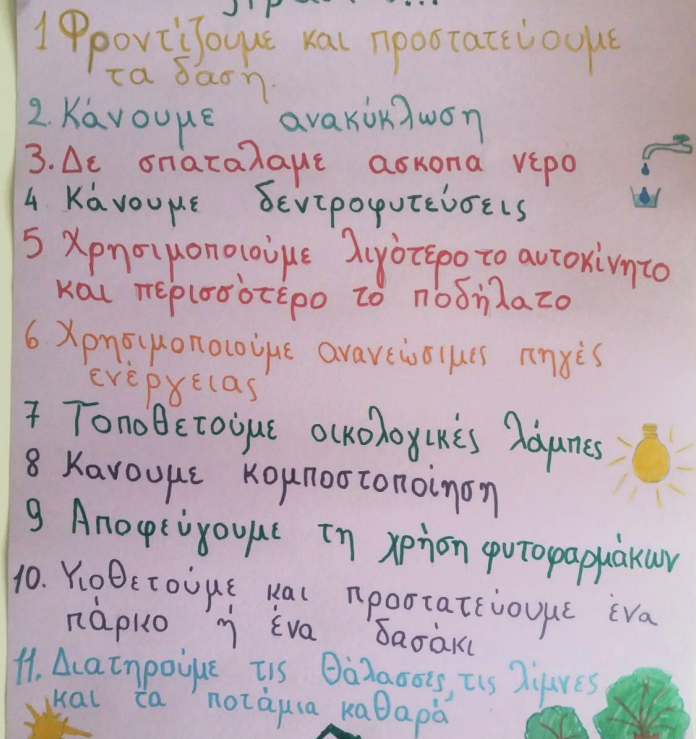 1 Φροντίζουμε και προστατεύουμε
τα δαση.
2. Κάνουμε ανακύκλωση
3. Δε σπαταλαμε ασκοπα νερο
4 Κάνουμε δεντροφυτεύσεις
5 Χρησιμοποιούμε λιγότερο το αυτοκίνητο
και περισσότερο το ποδήλατο
6 Χρησιμοποιούμε ανανεώσιμες πηγές
ενέργειας
7 Τοποθετούμε οικολογικές λάμπες
8 Κανουμε κομποστοποίηση
9 Αποφεύγουμε τη χρήση φυτοφαρμάκων
10. Υιοθετούμε και προστατεύουμε ένα
πάρκο ή ένα δασάκι
11. Διατηρούμε τις θάλασσες, τις λίμνες
και τα ποτάμια καθαρά